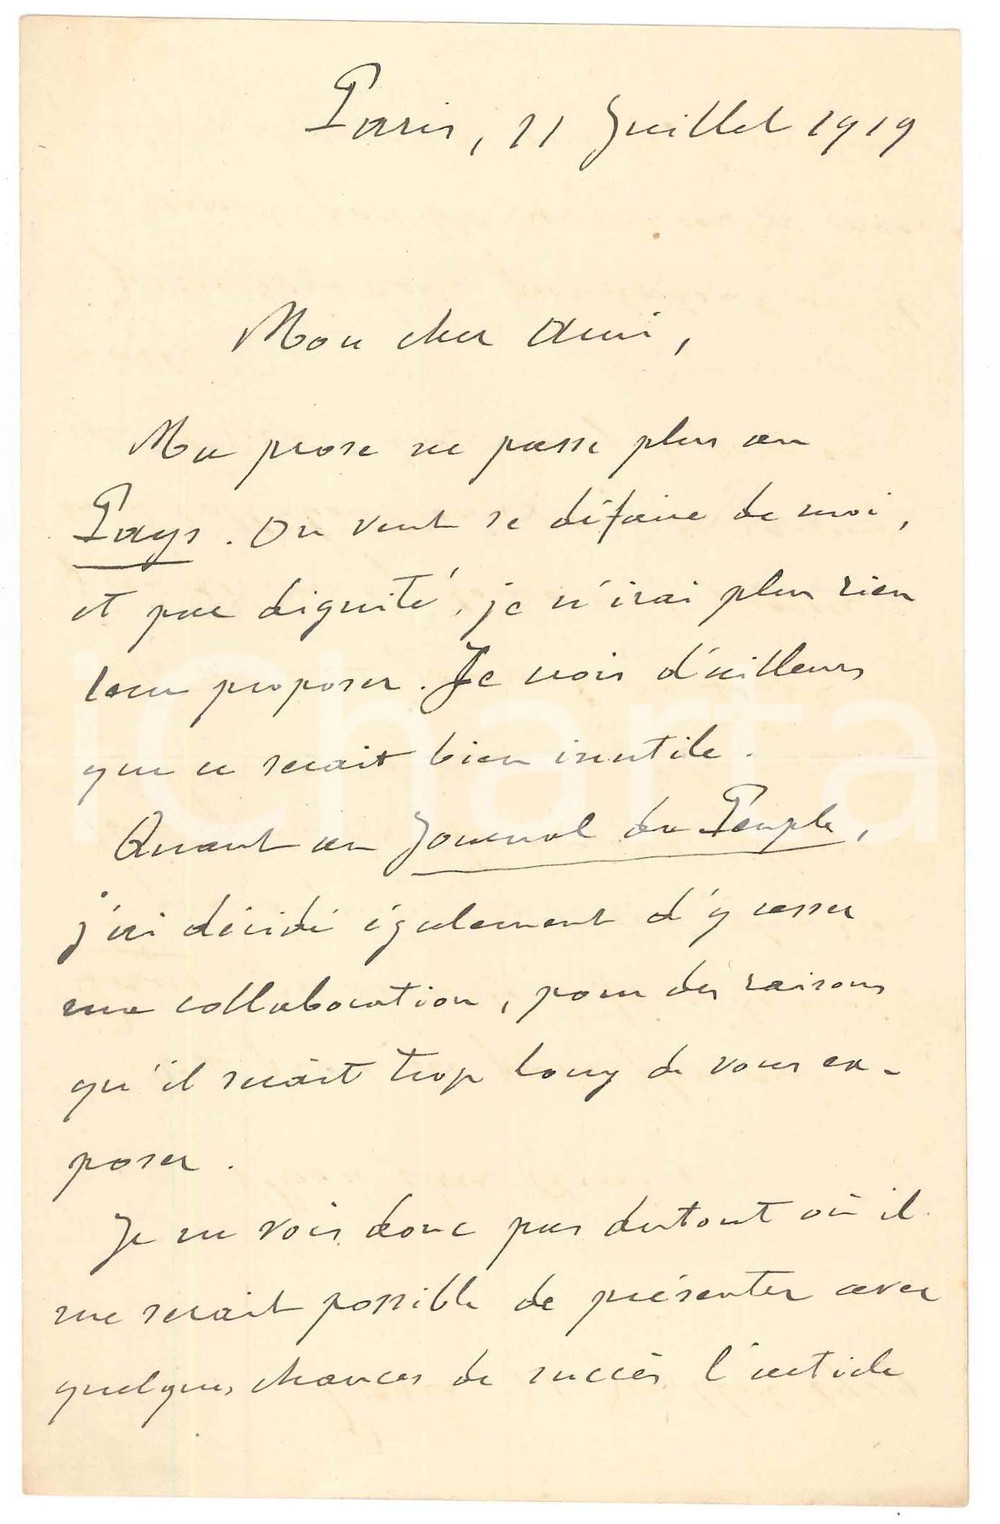 Paris, 11 Juillet 1919
Mon cher Ami,
Ma prose ne passe plus au
Pays. On veut se défaire de moi,
et par dignité, je n'irai plus rien
leur proposer. Je crois d'ailleurs
que ce serait bien inutile.
Quant au Journal du Peuple,
j'ai décidé également d'y cesser
ma collaboration, pour des raisons
qu'il serait trop long de vous ex-
poser.
Je ne vois donc pas du tout où il
me serait possible de présenter avec
quelques chances de succès l'article
iCharta